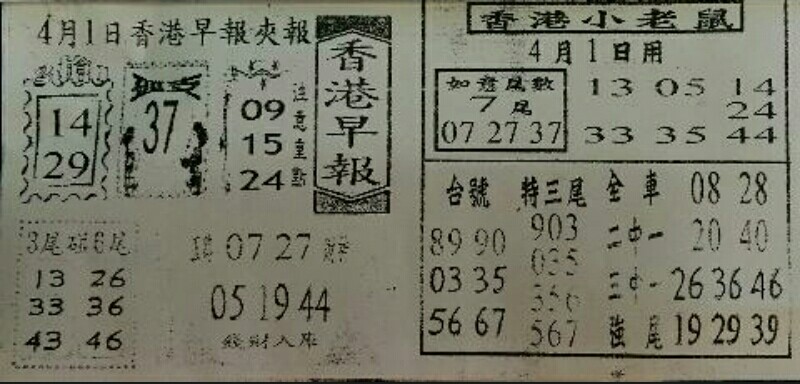 4月1日香港早報夾報
香港早報
14
29
37
09
15
24
注意重點
3尾碰6尾
13 26
33 36
43 46
07 27
05 19 44
發財入庫
香港小老鼠
4月1日用
如意尾數
7尾
07 27 37
13 05 14
24
33 35 44
台號 特三尾 全車 08 28
89 90 903 二中一 20 40
03 35 035 三中一 26 36 46
56 67 356 強尾 19 29 39
567